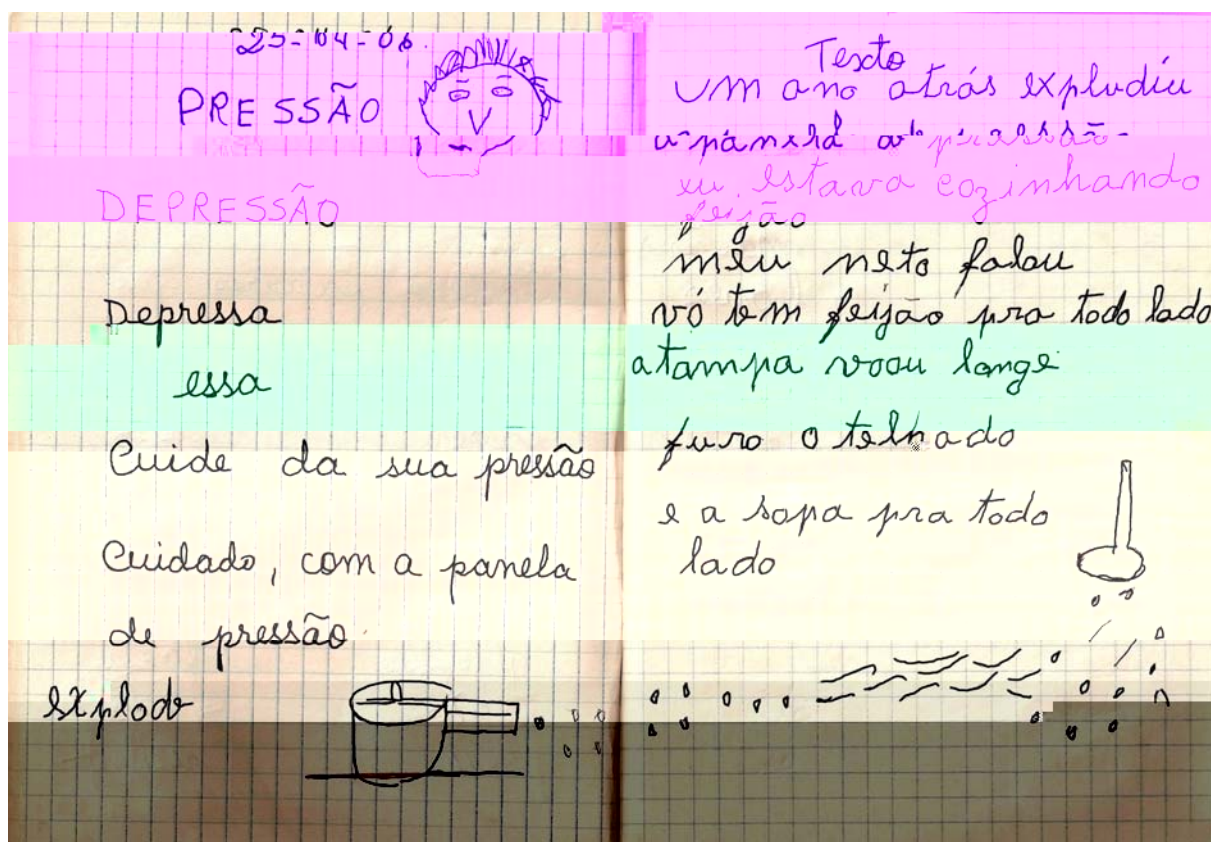 25-04-06
PRESSÃO
DEPRESSÃO
Depressa
essa
Cuide da sua pressão
Cuidado, com a panela
de pressão
explode
Texto
um ano atrás expludiu
a panela de pressão
eu estava cozinhando
feijão
meu neto falou
vó tem feijão pra todo lado
a tampa voou longe
furo o telhado
e a sopa pra todo
lado